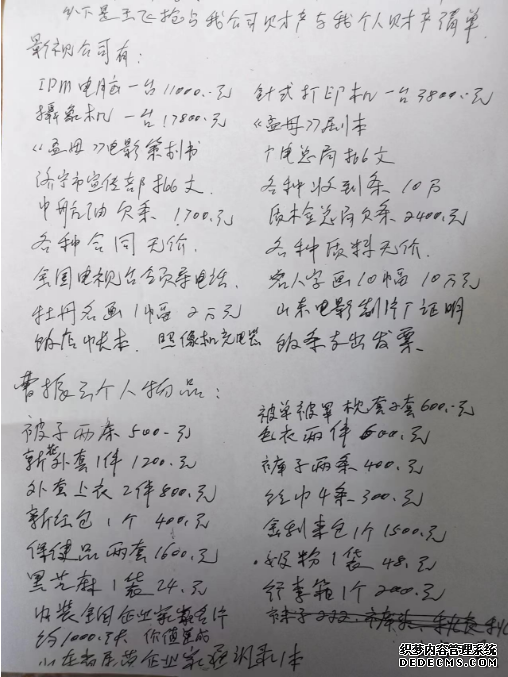 以下是王飞抢与我公司财产与我个人财产清单.
影视公司有:
IPM电脑一台11000.元 针式打印机一台3800.元
摄象机一台17800.元 《孟母》剧本
《孟母》电影策划书 广电总局批文
济宁市宣传部批文. 各种收到条10万
中航油欠条1700.元 质本金总局欠条2400.元
各种合同无价. 各种资料无价.
全国电视台台领导电话. 名人字画10幅10万元
牡丹名画1幅2万元 山东电影制片厂证明
饭店帐本. 照像机充电器 饭条支出发票.
曹振云个人物品:
被子两床500-元 被单被罩枕套3套600.元
新外套1件1200.元 毛衣两件600.元
外套上衣2件800.元 裤子两条400.元
新红包1个400.元 丝巾4条300.元
保健品两套1600.元 金利来包1个1500.元
黑芝麻1袋24.元 奶粉1袋48.元
内装全国企业家名片 经书箱1个2000.元
约1000.张 价值见的
企业家 录1本